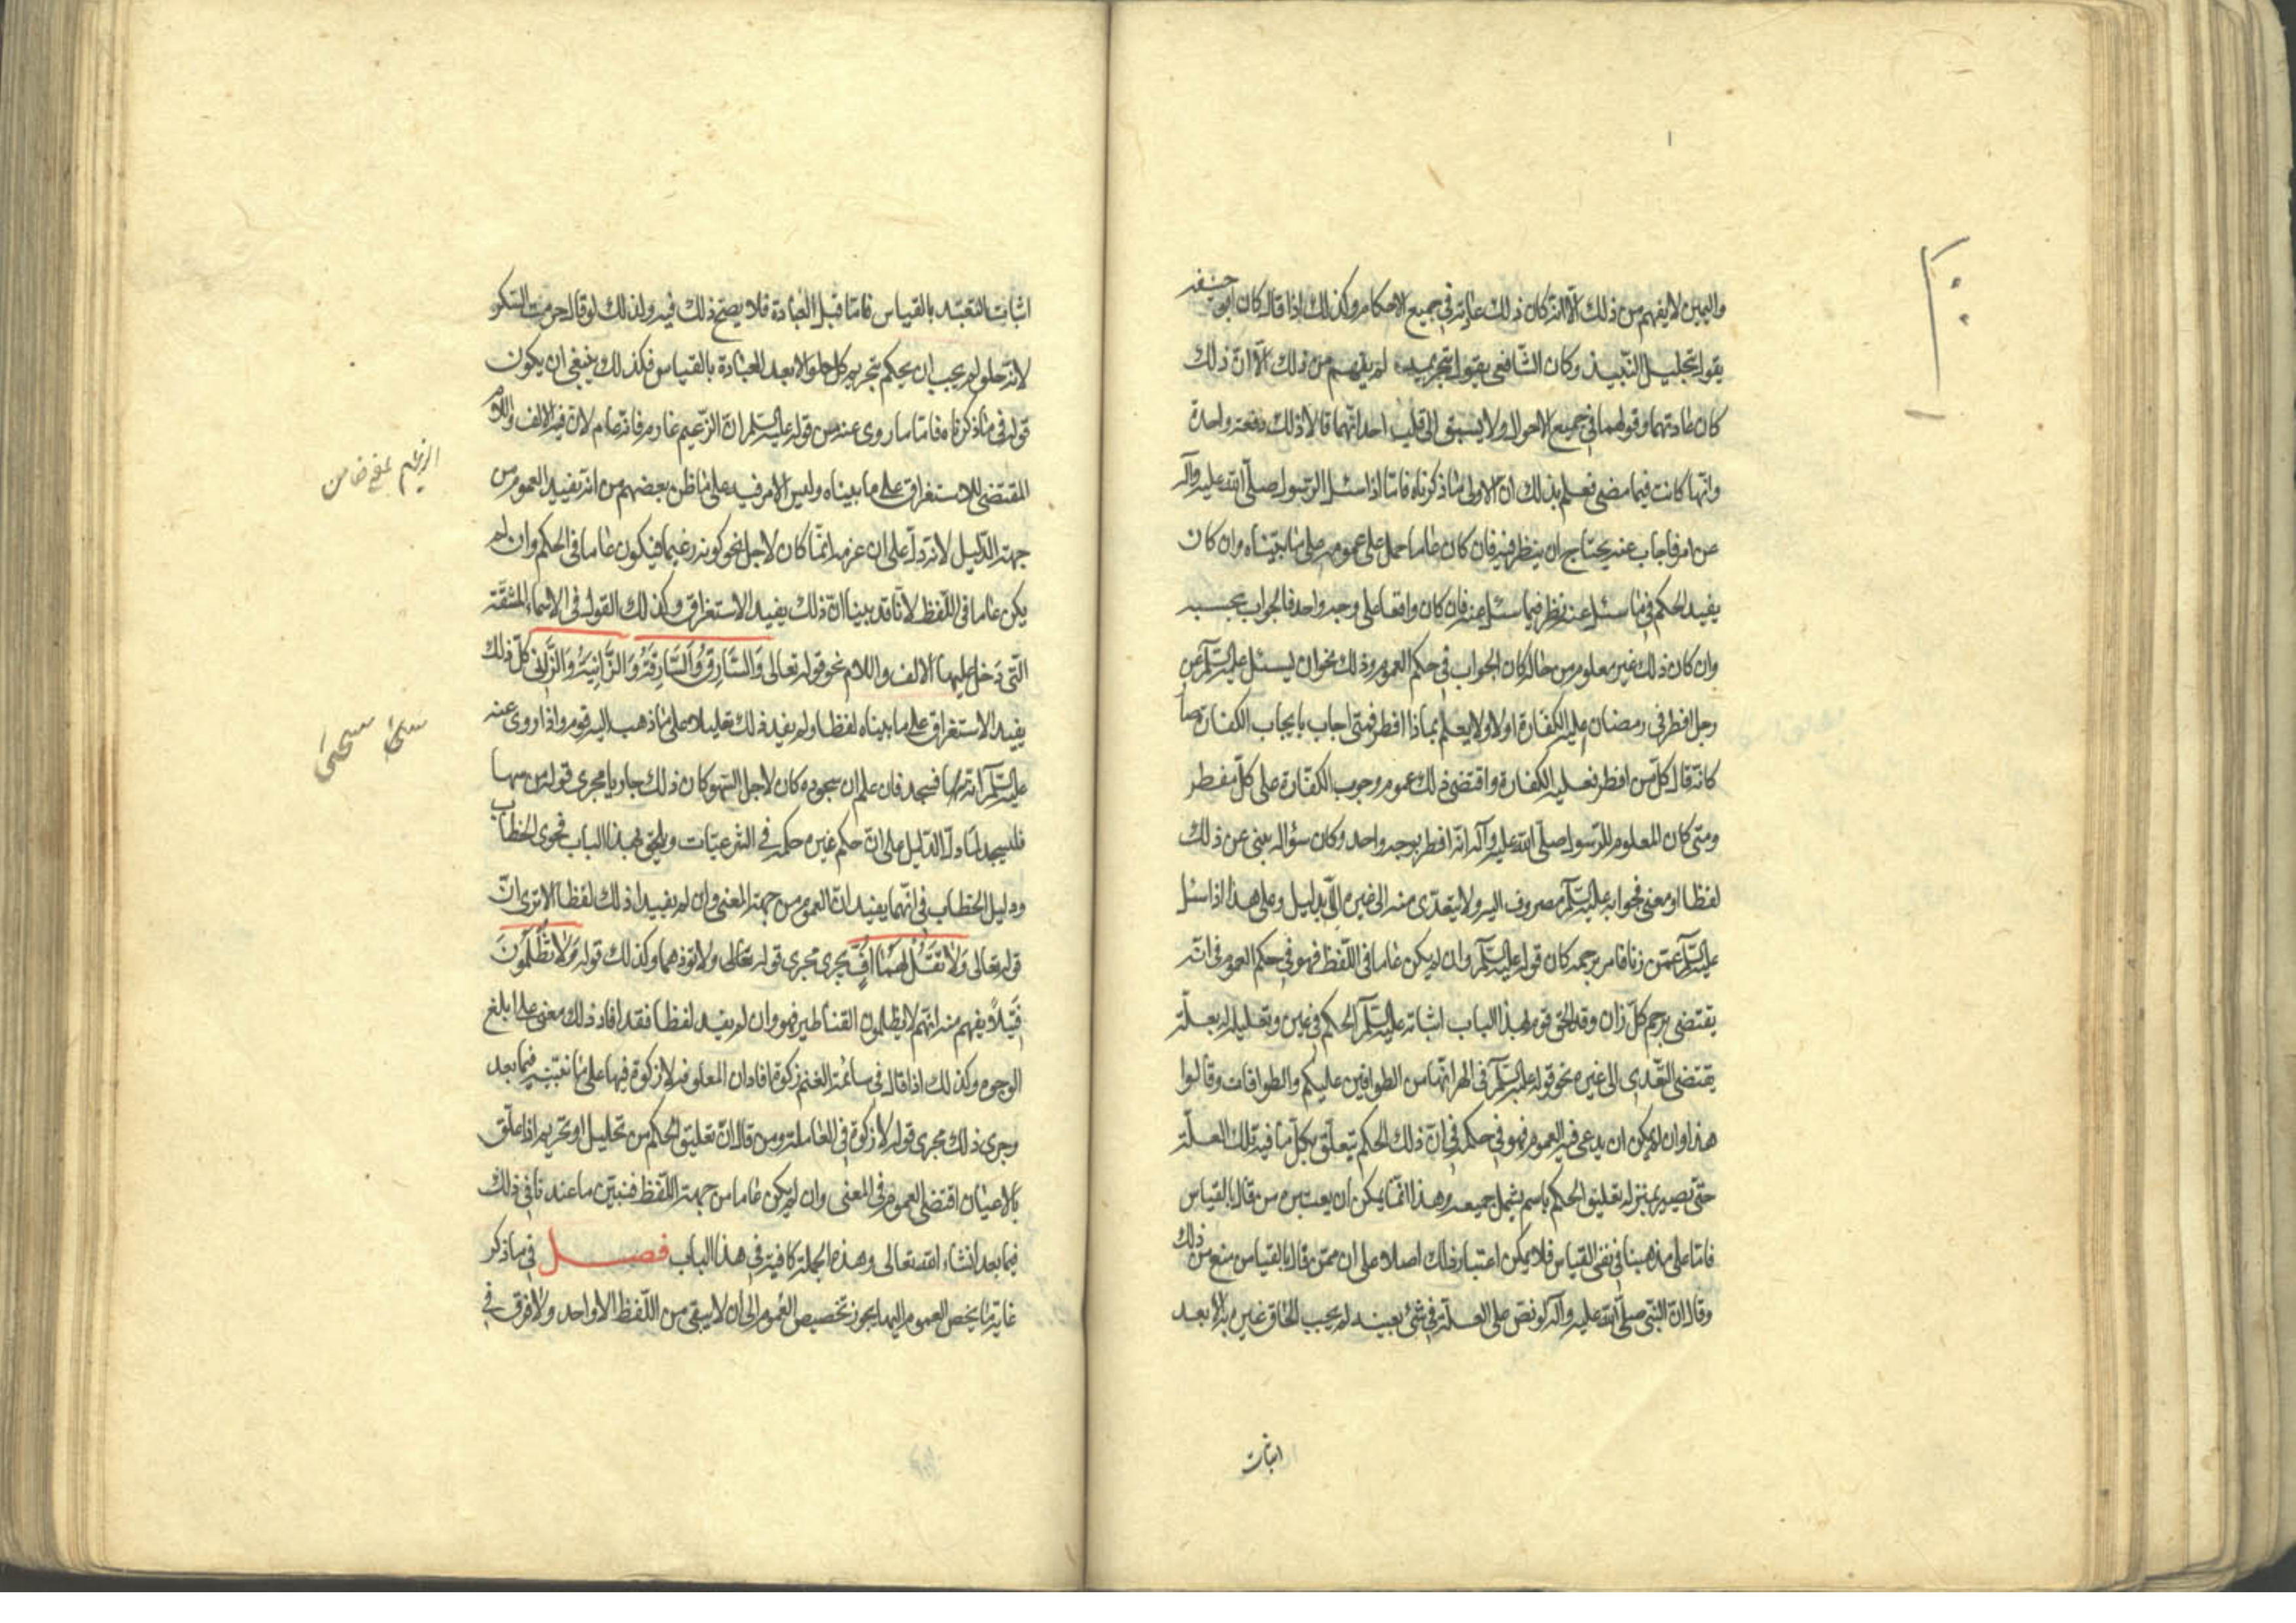 واليمين لا يفهم من ذلك الا انه كان ذلك عادته في جميع الاحكام وكذلك اذا قال كان ابو حنيفه
يقول بتحليل النّبيذ وكان الشّافعي يقول بتحريمه لم يفهم من ذلك الّا انّ ذلك
كان عادتهما وقولهما في جميع الاحوال ولا يسبق الى قلب احد انّهما قالا ذلك دفعة واحدة
وانّها كانت فيما مضى فعلم بذلك ان الاولى ما ذكرناه فامّا اذا سئل الرّسول صلّى الله عليه وآله
عن امر فاجاب عنه يحتاج ان ينظر فيه فان كان عاما حمل على عمومه على ما بيّناه وان كان
يفيد الحكم في ما سئل عنه نظر فيما سئل عنه فان كان واقعا على وجه واحد فالجواب بحسبه
وان كان ذلك غير معلوم من حاله كان الجواب في حكم العموم وذلك نحو ان يسئل عليه السّلم عن
رجل افطر في رمضان عليه الكفّارة اولا ولا يعلم بماذا افطر فمتى اجاب بايجاب الكفارة صا
كانّه قال كلّ من افطر فعليه الكفارة واقتضى ذلك عموم وجوب الكفّارة على كلّ مفطر
ومتى كان المعلوم للرّسول صلّى الله عليه وآله انّه افطر بوجه واحد وكان سؤاله ينبئ عن ذلك
لفظا او معنى فجوابه عليه السّلم مصروف اليه ولا يتعدّى منه الى غيره الّا بدليل وعلى هذا اذا سئل
عليه السّلم عمّن زنا فامر برجمه كان قوله عليه السّلم وان لم يكن عاما في اللّفظ فهو في حكم العموم في انّه
يقتضى رجم كلّ زان وقد الحق قوم بهذا الباب اثباته عليه السّلم الحكم في عين وتعليله له بعلّة
يقتضى التّعدى الى غيره نحو قوله عليه السّلم في الهر انّها من الطوافين عليكم والطوافات وقالوا
هذا وان لم يكن ان يدعى فيه العموم فهو في حكمه في انّ ذلك الحكم يتعلّق بكلّ ما فيه تلك العلّة
حتّى يصير بمنزله تعليق الحكم باسم يشمل جميعه وهذا انّما يمكن ان يعتبره من قال بالقياس
فامّا على مذهبنا في نفى القياس فلا يمكن اعتبار ذلك اصلا على ان ممّن قال بالقياس منع من ذلك
وقال انّ النّبي صلّى الله عليه وآله لو نصّ على العلّة في شئ بعينه لم يجب الحاق غيره به الّا بعد
اثبات
اثبات التعبّد بالقياس فامّا قبل العبادة فلا يصحّ ذلك فيه ولذلك لو قال حرمت السّكر
لانّه حلو لم يجب ان يحكم بتحريم كل حلو الا بعد العبادة بالقياس فكذلك ينبغى ان يكون
قوله في ما ذكرناه فامّا ما روى عنه من قوله عليه السّلم ان الزّعيم غارم فانّه عام لانّ فيه الالف واللّام
المقتضى للاستغراق على ما بيناه وليس الامر فيه على ما ظن بعضهم من انه يفيد العموم من
جهة الدّليل لانّه دلّ على ان غرمه انّما كان لاجل نحو كونه زعيما فيكون عاما في الحكم وان لم
يكن عاما في اللّفظ لانّا قد بينا انّ ذلك يفيد الاستغراق وكذلك القول في الاسماء المشتقّة
الّتى دخل عليها الالف واللام نحو قوله تعالى وَالسّارِقُ وَالسّارِقَةُ وَالزّانِيَةُ وَالزّانِى كلّ ذلك
يفيد الاستغراق على ما بيناه لفظا ولم يفيد ذلك تعليلا على ما ذهب اليه قوم واذا روى عنه
عليه السّلم انّه سها فسجد فان علم ان سجوده كان لاجل السّهو كان ذلك جاريا مجرى قوله من سها
فليسجد لما دلّ الدّليل على انّ حكم غيره حكمه في الشّرعيّات ويلحق بهذا الباب فحوى الخطاب
ودليل الخطاب في انّهما يفيدان العموم من جهة المعنى وان لم يفيدا ذلك لفظا الا ترى انّ
قوله تعالى وَلا تَقُلْ لَهُما اُفٍّ يجرى مجرى قوله تعالى ولا تؤذهما وكذلك قوله وَلا تُظْلَمُونَ
فَتيلاً يفهم منه انّهم لا يظلمون القناطير فهو وان لم يفيد لفظا فقد افاد ذلك معنى على ابلغ
الوجوه وكذلك اذا قال في سائمة الغنم زكوة افاد ان المعلوفه لا زكوة فيها على ما نبيّنه فيما بعد
وجرى ذلك مجرى قوله لا زكوة في العاملة ومن قال انّ تعليق الحكم من تحليل او تحريم اذا علّق
بالاعيان اقتضى العموم في المعنى وان لم يكن عاما من جهة اللّفظ فنبيّن ما عندنا في ذلك
فيما بعد انشاء الله تعالى وهذه الجملة كافية في هذا الباب فصل في ما ذكر
غاية ما يخص العموم اليها يجوز تخصيص العموم الى ان لا يبقى من اللّفظ الا واحد ولا فرق في
الزعيم بمعنى ضامن